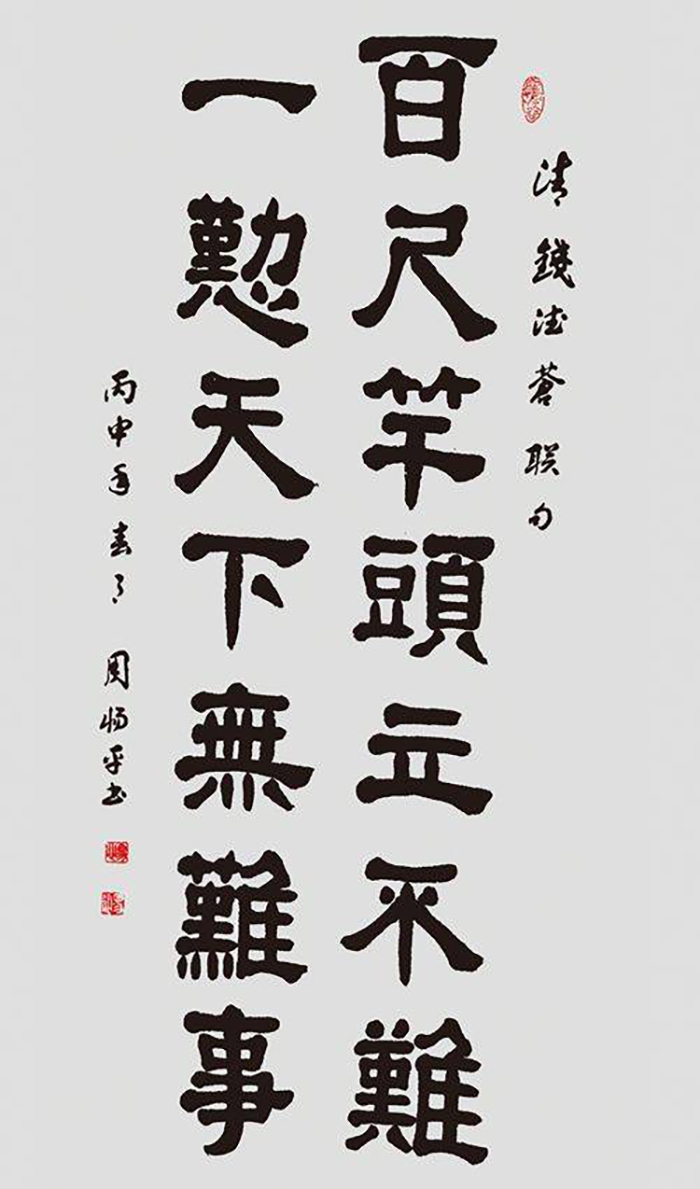 清錢德蒼联句
百尺竿頭立不難
一懃天下無難事
丙申年春月 周惕平书